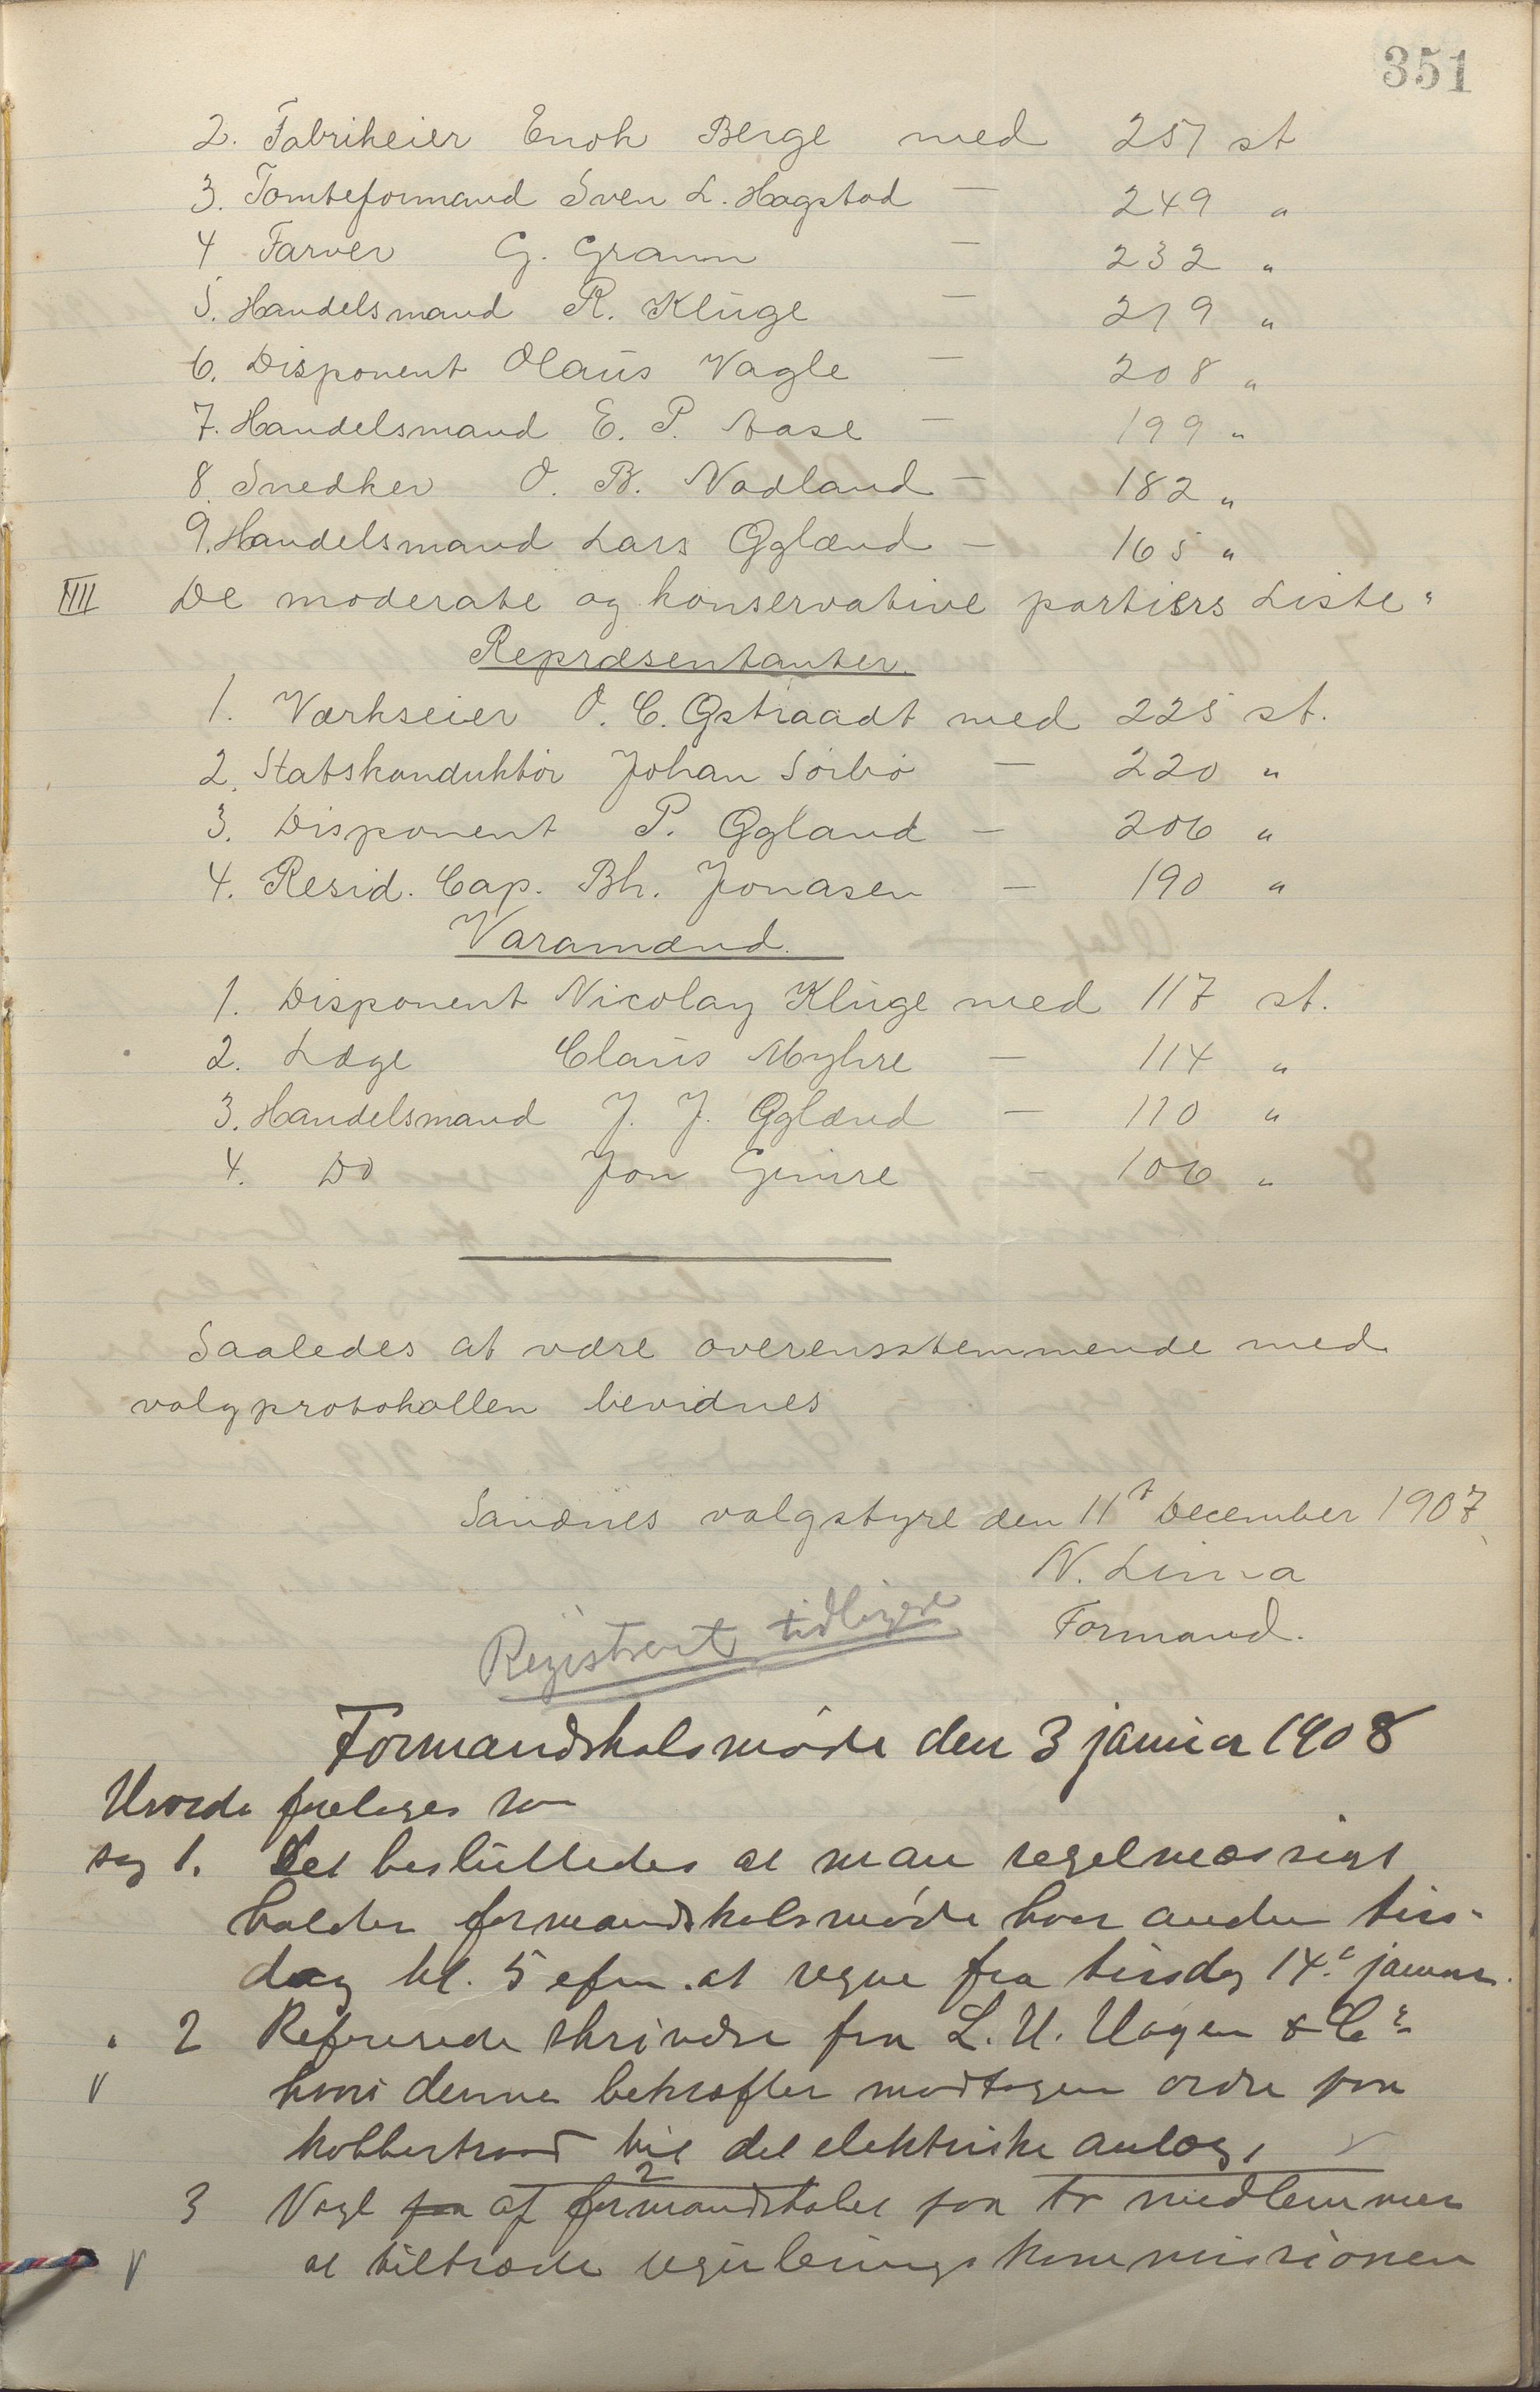 351
2. Fabrikeier Enok Berge med 257 st
3. Tomteformand Sven L. Hogstad — 249 "
4 Farver G. Grann — 232 "
5. Handelsmand R. Kluge — 219 "
6. Disponent Olaus Vagle — 208 "
7. Handelsmand E. P. Aase — 199 "
8. Snedker O. B. Nodland — 182 "
9. Handelsmand Lars Øglænd — 165 "
IIII De moderate og konservative partiers Liste"
Repræsentanter.
1. Værkseier O. C. Østraadt med 225 st.
2. Statskonduktør Johan Sørbø — 220 "
3. Disponent P. Øgland — 206 "
4. Resid. Cap. Bh. Jonasen — 190 "
Varamænd.
1. Disponent Nicolay Kluge med 117 st.
2. Læge Claus Myhre — 114 "
3. Handelsmand J. J. Øglænd — 110 "
4. Do Jon Gimre — 106 "
Saaledes at være overensstemmende med
valgprotokollen bevidnes
Sandnes valgstyre den 11t December 1907
N. Lima
Formand.
Registrert tidligere
Formandskabsmøde den 3 januar 1908
Hvorda foretages som
sag 1. Det besluttedes at man regelmæssigt
holder formandskabsmøde hver anden tirs-
dag kl. 5 efm. at regne fra tirsdag 14de januar.
" 2 Refererede skrivelse fra L. U. Vagen & Co
V hvori denne bekræfter modtagen ordre paa
kobbertraad til det elektriske anlæg. V
3 Valg paa af formandskabet paa to 2 medlemmer
V at tiltræde reguleringskommissionen